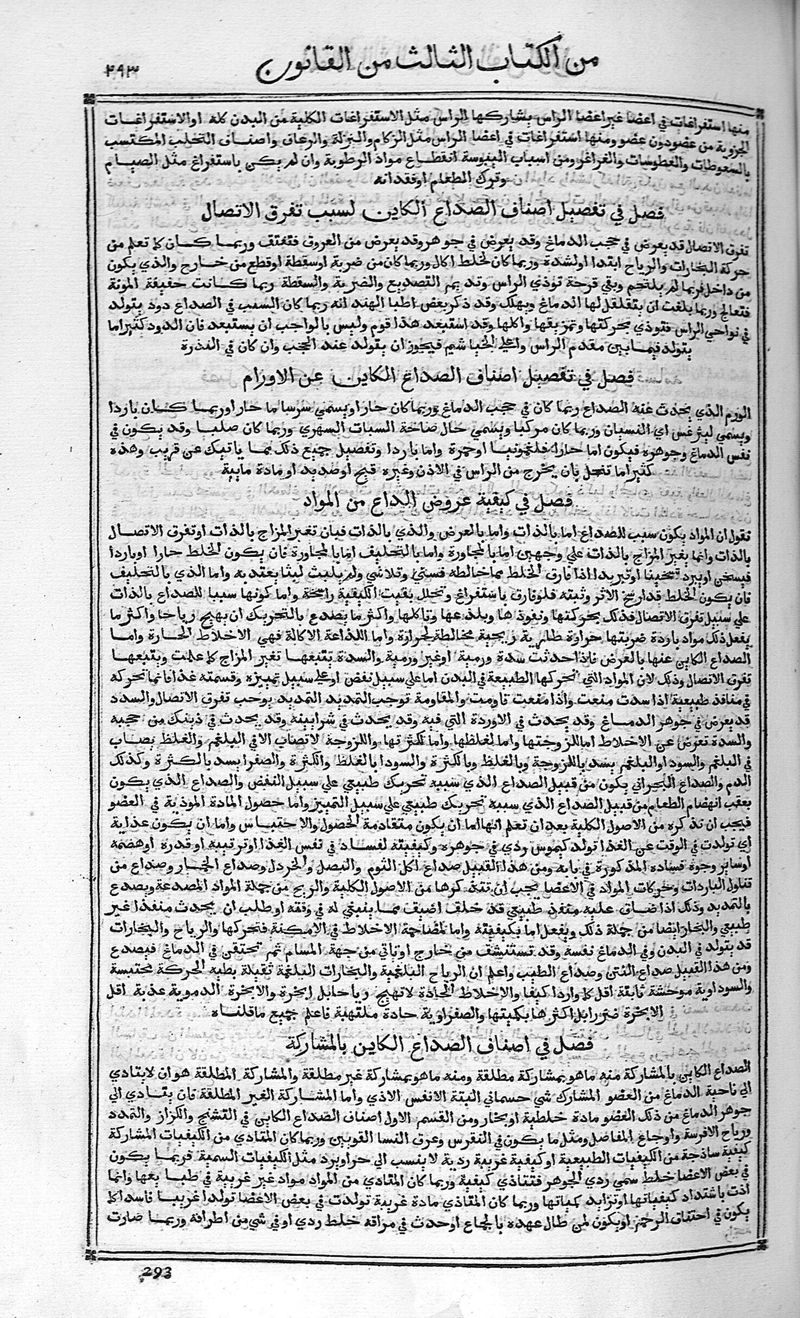 من الكتاب الثالث من القانون
٢٩٣
منها استفراغات في اعضا غير اعضا الراس يشاركها الراس مثل الاستفراغات الكلية من البدن كله او الاستفراغات
الجزوية من عضو دون عضو ومنها استفراغات في اعضا الراس مثل الزكام والنزلة والرعاف واصناف التحلب المكتسب
بالسعوطات والغطوسات والغراغر ومن اسباب اليبوسة انقطاع مواد الرطوبة وان لم يكن باستفراغ مثل الصيام
وترك الطعام او فقدانه
فصل في تفصيل اصناف الصداع الكاين لسبب تفرق الاتصال
تفرق الاتصال قد يعرض في حجب الدماغ وقد يعرض في جوهره وقد يعرض من العروق فتفتق وربما كان كما تعلم من
حركة البخارات والرياح ابتدا او لشدة وربما كان لخلط اكال وربما كان من ضربة او سقطة او قطع من خارج والذي يكون
من داخل فربما لم يلتحم وبقي قرحة تؤذي الراس
فتعالج وربما بلغت ان يتقلقل لها الدماغ ويهلك وقد ذكر بعض اطبا الهند انه ربما كان السبب في الصداع دود يتولد
في نواحي الراس فتوذي بحركتها وتمزيقها واكلها وقد استبعد هذا قوم وليس بالواجب ان يستبعد فان الدود كثيرا ما
يتولد فيما بين مقدم الراس واعلي الخياشيم فيجوز ان يتولد عند الحجب وان كان في الندرة
فصل في تفصيل اصناف الصداع الكاين عن الاورام
الورم الذي يحدث عنه الصداع ربما كان في حجب الدماغ وربما كان حارا ويسمي سرساما حارا وربما كان باردا
ويسمي ليثرغس اي النسيان وربما كان مركبا ويسمي حال صاحبه السبات السهري وربما كان صلبا وقد يكون في
نفس الدماغ وجوهره فيكون اما حارا فلغمونيا او حمرة واما باردا وتفصيل جميع ذلك مما ياتيك عن قريب وهذه
كثيرا ما تنحل بان يخرج من الراس في الاذن وغيره قيح او صديد او مادة مايية
فصل في كيفية عروض الداع من المواد
نقول ان المواد يكون سبب للصداع اما بالذات واما بالعرض والذي بالذات فبان تغير المزاج بالذات او تفرق الاتصال
بالذات وانها يغير المزاج بالذات علي وجهين اما بالمجاورة واما بالتخليف اما بالمجاورة فان يكون الخلط حارا او باردا
فيسخن او يبرد تسخينا او تبريدا اذا فارق الخلط مما خالطه وتلاشي ولم يلبث لبثا يعتد به واما الذي بالتخليف
فان يكون الخلط قد ارسخ الاثر وثبته فلو فارق باستفراغ وتحلل بقيت الكيفية راسخة واما كونها سببا للصداع بالذات
علي سبيل تفرق الاتصال فذلك بحركتها ونفوذها وبلذعها وتاكلها واكثر ما يصدع بالتحريك ان يهيج رياحا واكثر ما
يفعل ذلك مواد باردة ضربتها حرارة طارية واما اللذاعة الاكالة فهي الاخلاط الحارة واما
الصداع الكاين عنها بالعرض فاذا حدثت سدة ورمية او غير ورمية والسدة يتبعها تغير المزاج كما علمت ويتبعها
تفرق الاتصال وذلك لان المواد التي تحركها الطبيعة في البدن اما علي سبيل نفض او علي سبيل تميزه وقسمته غذا انما تحركه
في منافذ طبيعية اذا سدت منعت واذا منعت قاومت والمقاومة توجب التمديد التمديد يوجب تفرق الاتصال والسدد
قد يعرض في جوهر الدماغ وقد يحدث في الاوردة التي فيه وقد يحدث في شرايينه وقد يحدث في ذينك من حجبه
والسدة تعرض عن الاخلاط اما للزوجتها واما لغلظها واما لكثرتها واللزوجة لا تصاب الا في البلغم والغلظ يصاب
في البلغم والسودا والبلغم يسد باللزوجة وبالغلظ وبالكثرة والسودا بالغلظ والكثرة والصفرا يسد بالكثرة وكذلك
الدم والصداع البحراني يكون من قبيل الصداع الذي سببه تحريك طبيعي علي سبيل النفض والصداع الذي يكون
بعقب انهضام الطعام من قبيل الصداع الذي سببه تحريك طبيعي علي سبيل التمييز واما حصول المادة الموذية في العضو
فيجب ان تذكره من الاصول الكلية بعد ان تعلم انها اما ان يكون متقادمة الحصول والاحتباس واما ان يكون غذاية
اي تولدت في الوقت عن الغذا تولد كيموس ردي في جوهره وكيفيته لفساد في نفس الغذا او ترتيبه او قدره او هضمه
او ساير وجوه فساده المذكورة في بابه ومن هذا القبيل صداع اكل الثوم والبصل والخردل وصداع الخمار وصداع من
تناول الباردات وحركات المواد في الاعضا يجب ان تتذكرها من الاصول الكلية والريح من جملة المواد المصدعة ويصدع
بالتمديد وذلك اذا ضاق عليه منفذ طبيعي قد خلف اضيق مما ينبغي له في وقته او طلب ان يحدث منفذا غير
طبيعي والبخار ايضا من جملة ذلك ويفعل اما بكيفيته واما لمضاحمة الاخلاط في الامكنة فتحركها والرياح والبخارات
قد يتولد في البدن وفي الدماغ نفسه وقد تستنشف من خارج او تاتي من جهة المسام ثم تحتقن في الدماغ فيصدع
ومن هذا القبيل صداع النتن وصداع الطيب واعلم ان الرياح البلغمية والبخارات البلغمية ثقيلة بطية الحركة محتبسة
والسوداوية موحشة اقل كما واردا كيفا والاخلاط الحادة لا تهيج رياحا بل ابخرة والابخرة الدموية عذبة اقل
الابخرة بكيفيتها والصفراوية حادة ملتهبة فاعلم جميع ما قلناه
فصل في اصناف الصداع الكاين بالمشاركة
الصداع الكاين بالمشاركة منه ما هو بمشاركة مطلقة ومنه ما هو بمشاركة غير مطلقة والمشاركة المطلقة هو ان لا يتادي
الي ناحية الدماغ من العضو المشارك شي جسماني البتة الا نفس الاذي واما المشاركة الغير المطلقة فان يتادي الي
جوهر الدماغ من ذلك العضو مادة خلطية او بخار ومن القسم الاول اصناف الصداع الكاين في التشنج والكزاز والتمدد
ورياح الافرسة واوجاع المفاصل ومثل ما يكون في النقرس وعرق النسا القويين وربما كان المتادي من الكيفيات المشاركة
كيفية ساذجة من الكيفيات الطبيعية او كيفية غريبة ردية لا ينسب الي حر او برد مثل الكيفيات السمية فربما يكون
في بعض الاعضا خلط سمي ردي الجوهر فتتادي كيفية وربما كان المتادي من المواد مواد غير غريبة في طبايعها وانما
اذت باشتداد كيفياتها او تزايد كمياتها وربما كان المتادي مادة غريبة تولدت في بعض الاعضا تولدا غريبا فاسدا كما
يكون في احتقان الرحم او يكون لمن طال عهده بالجماع او حدث في مراقه خلط ردي او في شي من اطرافه وربما صارت
293